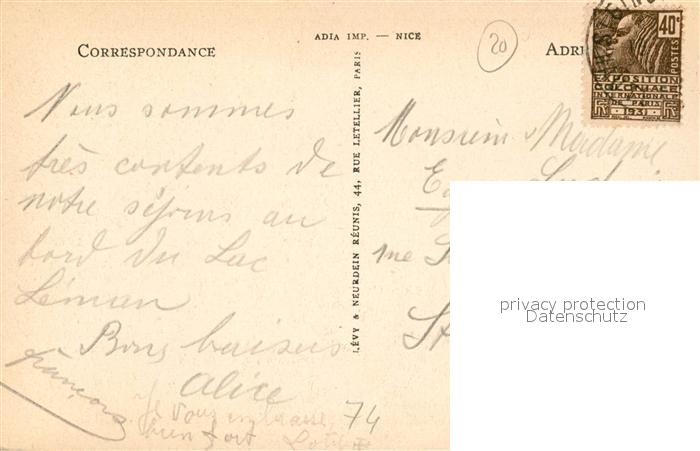 ADIA IMP. — NICE
CORRESPONDANCE
20
40c
POSTES
EXPOSITION
COLONIALE
INTERNATIONALE
DE PARIS
1931
LÉVY & NEURDEIN RÉUNIS, 44, RUE LETELLIER, PARIS
Nous sommes
très contents de
notre séjour au
bord du Lac
Léman
Bons baisers
Alice
François
Je vous embrasse
bien fort
74
Monsieur Madame
privacy protection
Datenschutz